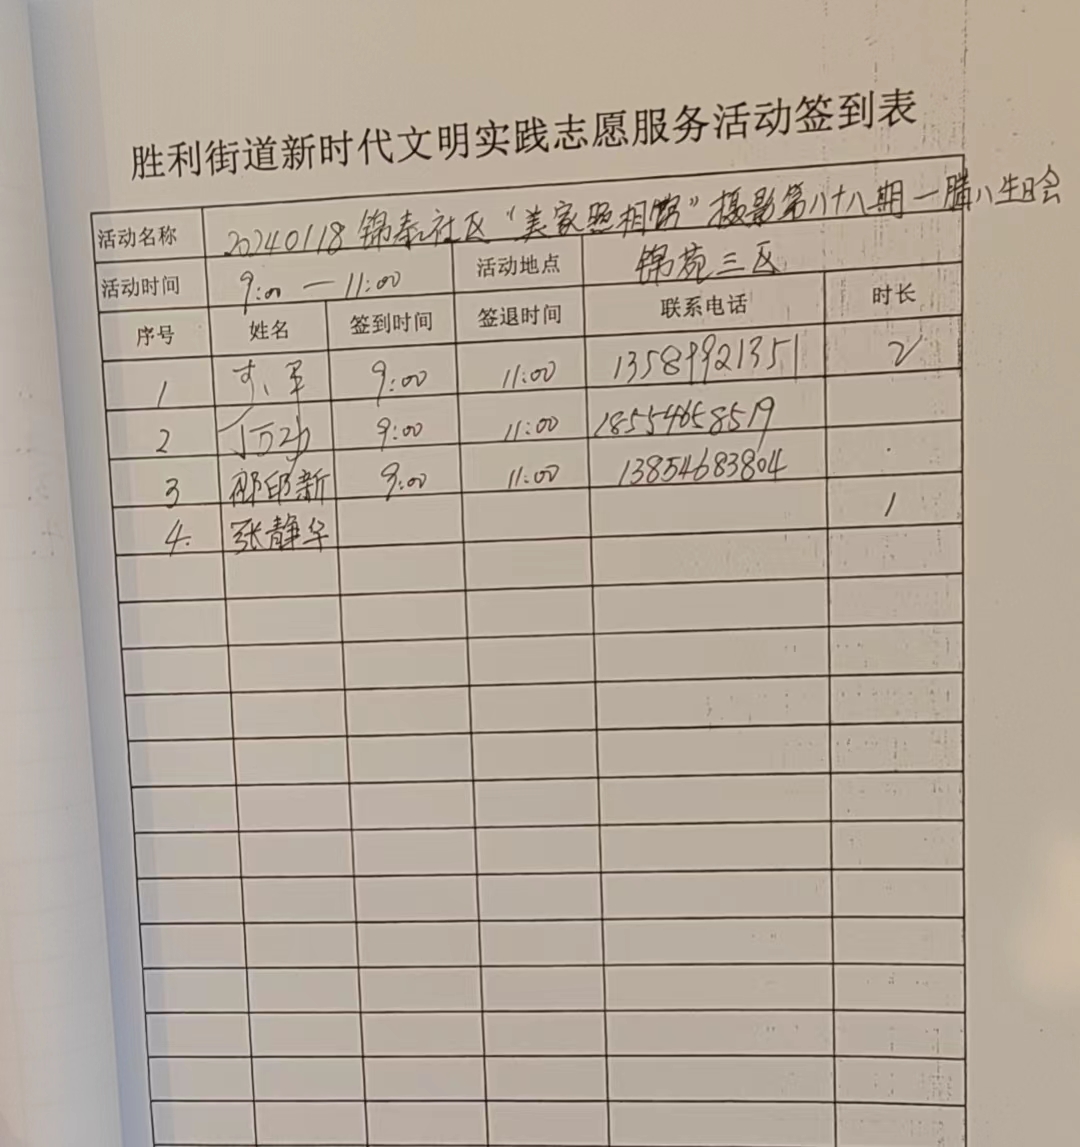 胜利街道新时代文明实践志愿服务活动签到表
活动名称 20240118 锦泰社区“美家照相馆”摄影第八十八期一腊八生日会
活动时间 9:00 — 11:00 活动地点 锦苑三区
序号 姓名 签到时间 签退时间 联系电话 时长
1 军 9:00 11:00 13589921351 2
2 丁万功 9:00 11:00 18554658519
3 邴印新 9:00 11:00 13854683804
4. 张静华 1